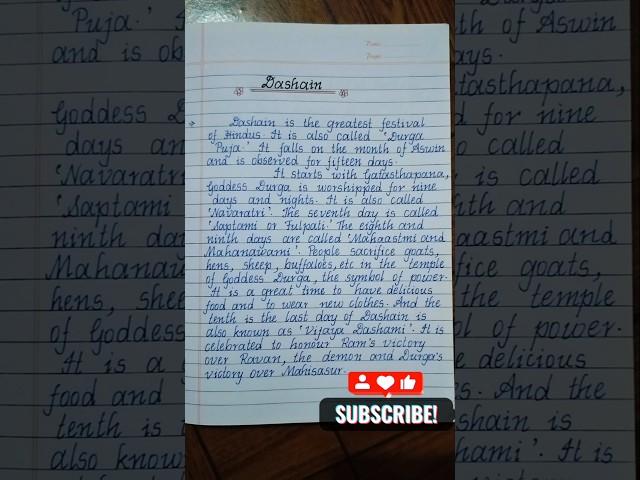 Dashain
Dashain is the greatest festival
of Hindus. It is also called 'Durga
Puja.' It falls on the month of Aswin
and is observed for fifteen days.
It starts with Gatasthapana,
Goddess Durga is worshipped for nine
days and nights. It is also called
'Navaratri'. The seventh day is called
'Saptami or Fulpati.' The eighth and
ninth days are called 'Mahaastmi and
Mahanawami'. People sacrifice goats,
hens, sheep, buffaloes, etc in the temple
of Goddess Durga, the symbol of power.
It is a great time to have delicious
food and to wear new clothes. And the
tenth is the last day of Dashain is
also known as 'Vijaya Dashami'. It is
celebrated to honour Ram's victory
over Ravan, the demon and Durga's
victory over Mahisasur.
SUBSCRIBE!